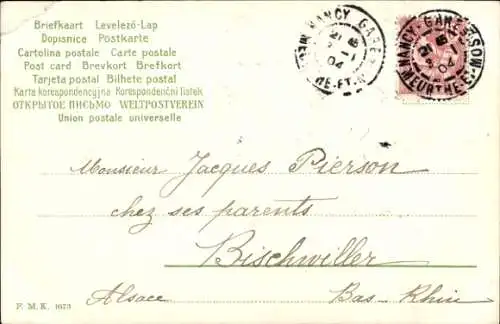 Briefkaart Levelező-Lap
Dopisnice Postkarte
Cartolina postale Carte postale
Post card Brevkort Brefkort
Tarjeta postal Bilhete postal
Karta korespondencyjna Korespondenčni listek
ОТКРЫТОЕ ПИСЬМО WELTPOSTVEREIN
Union postale universelle
NANCY GARE
21 E
2-1
04
NANCY GARE
21 E
2-1
04
MEURTHE-E
Monsieur Jacques Pierson
chez ses parents
Bischwiller
Alsace Bas-Rhin
F. M. K. 1673